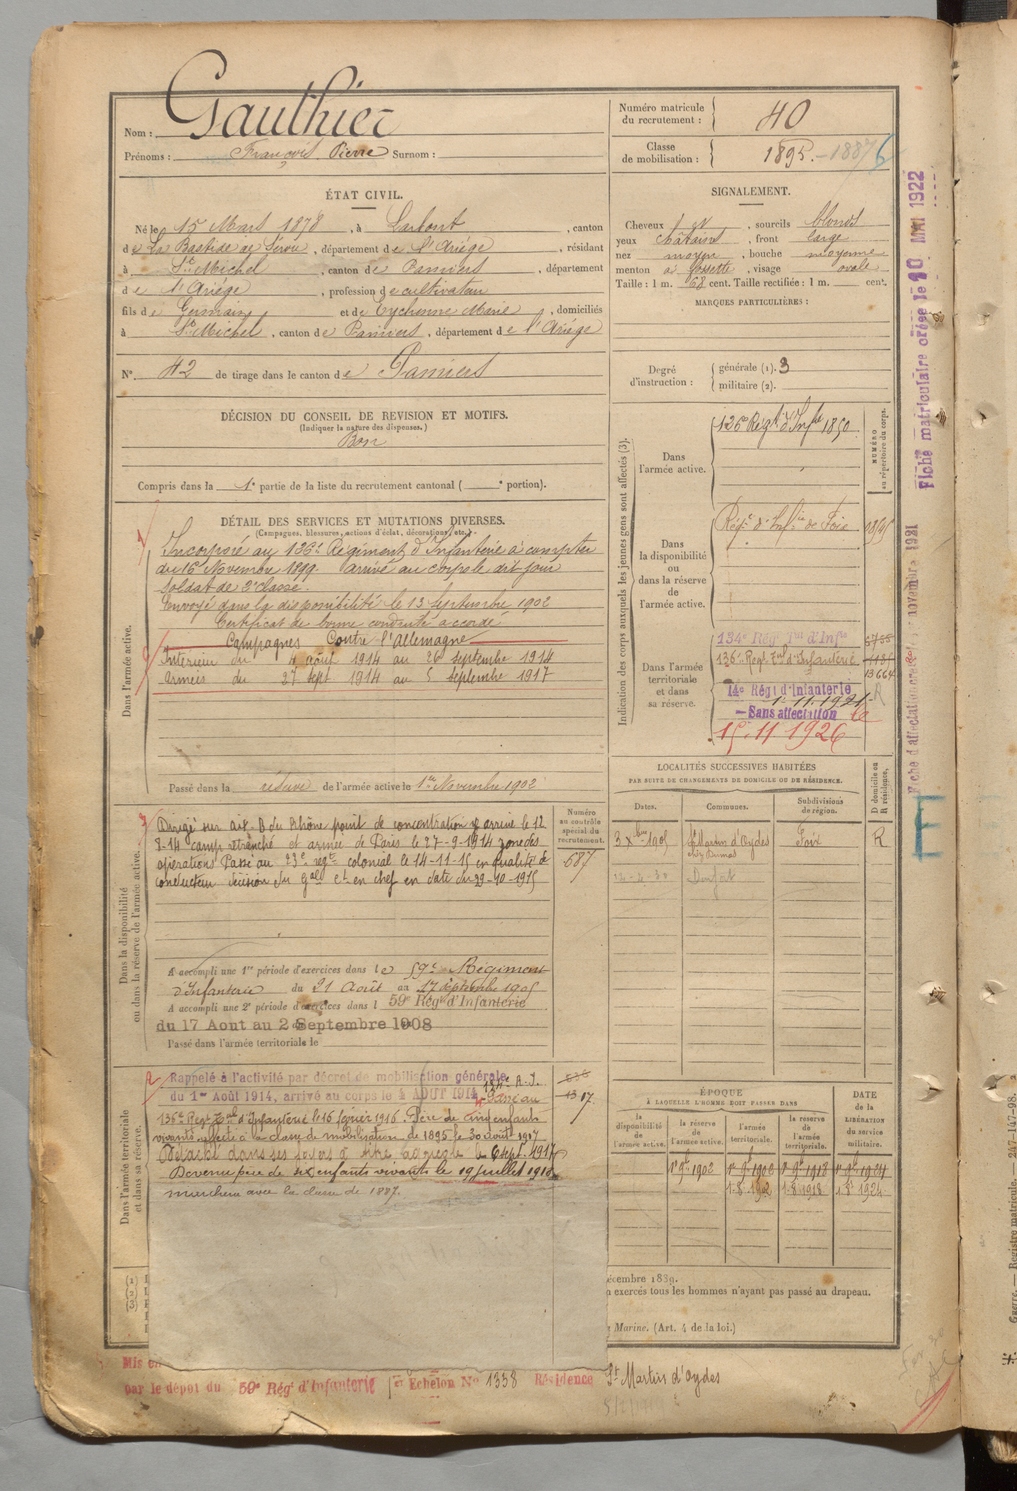 Nom : Gauthier
Prénoms : François Pierre Surnom :
Numéro matricule du recrutement : 40
Classe de mobilisation : 1895. - 1887
ÉTAT CIVIL.
Né le 15 Mars 1878, à , canton
de La Bastide de Serou, département de l'Ariége, résidant
à St Michel, canton de Pamiers, département
de l'Ariége, profession de cultivateur
fils de Germain et de Eychenne Marie, domiciliés
à St Michel, canton de Pamiers, département de l'Ariége
N° 42 de tirage dans le canton de Pamiers
SIGNALEMENT.
Cheveux et , sourcils blonds
yeux châtains, front large
nez moyen, bouche moyenne
menton à fossette, visage ovale
Taille : 1 m. 68 cent. Taille rectifiée : 1 m. cent.
MARQUES PARTICULIÈRES :
Degré d'instruction : générale (1). 3
militaire (2).
DÉCISION DU CONSEIL DE REVISION ET MOTIFS.
(Indiquer la nature des dispenses.)
Bon
Compris dans la 1e partie de la liste du recrutement cantonal ( e portion).
DÉTAIL DES SERVICES ET MUTATIONS DIVERSES.
(Campagnes, blessures, actions d'éclat, décorations, etc.)
Dans l'armée active.
Incorporé au 126e Régiment d'Infanterie à compter
du 16 Novembre 1899. arrivé au corps le dit jour
soldat de 2e classe.
Envoyé dans la disponibilité le 13 Septembre 1902
Certificat de bonne conduite accordé
Campagnes Contre l'Allemagne
Intérieur du 4 août 1914 au 26 septembre 1914
Armées du 27 sept 1914 au 5 septembre 1917
Passé dans la réserve de l'armée active le 1er Novembre 1902
Indication des corps auxquels les jeunes gens sont affectés (3).
NUMÉRO au répertoire du corps.
Dans l'armée active.
126e Régt d'Infie 1850
Dans la disponibilité ou dans la réserve de l'armée active.
Régt d'Infie de Foix
Dans l'armée territoriale et dans sa réserve.
134e Régt Tal d'Infie
136e Régt Tal d'Infanterie
14e Régt d'Infanterie R
1.11.1921
— Sans affectation le
15.11 1926
Fiche matriculaire créée le 10 MAI 1922
novembre 1921
Dans la disponibilité ou dans la réserve de l'armée active.
Numéro au contrôle spécial du recrutement.
687
Dirigé sur Aix B du Rhône point de concentration y arrivé le 12
8-14 camp retranché et armée de Paris le 27-9-1914 zone des
opérations Passé au 23e regt colonial le 14-11-15 en qualité de
conducteur décision du Gal Ct en chef en date du 29-10-1915
A accompli une 1re période d'exercices dans le 59e Régiment
d'Infanterie du 21 Août au 17 septembre 1905
A accompli une 2e période d'exercices dans l 59e Régt d'Infanterie
du 17 Aout au 2 Septembre 1908
Passé dans l'armée territoriale le
LOCALITÉS SUCCESSIVES HABITÉES
PAR SUITE DE CHANGEMENTS DE DOMICILE OU DE RÉSIDENCE.
Dates. Communes. Subdivisions de région. D domicile ou R résidence.
3 Xbre 1905 St Martin d'Oydes Foix R
chez Dumas
E
Dans l'armée territoriale et dans sa réserve.
Rappelé à l'activité par décret de mobilisation générale
du 1er Août 1914, arrivé au corps le 4 AOUT 1914
136e Régt Tal d'Infanterie le 16 février 1916. Père de cinq enfants
vivants affecté à la classe de mobilisation de 1895 le 30 août 1917
Détaché dans ses foyers à titre agricole le 6 Sept. 1917
Devenu père de six enfants vivants le 19 juillet 1918
marchera avec la classe de 1887.
ÉPOQUE
À LAQUELLE L'HOMME DOIT PASSER DANS
la disponibilité de l'armée active. la réserve de l'armée active. l'armée territoriale. la réserve de l'armée territoriale.
DATE de la LIBÉRATION du service militaire.
1er 9bre 1902
(1)
(2)
(3)
décembre 1889.
n exercés tous les hommes n'ayant pas passé au drapeau.
Marine. (Art. 4 de la loi.)
Mis en
par le dépot du 59e Régt d'Infanterie Echelon No 1338 Résidence St Martin d'Oydes
Guerre. — Registre matricule. — 247-147-98.